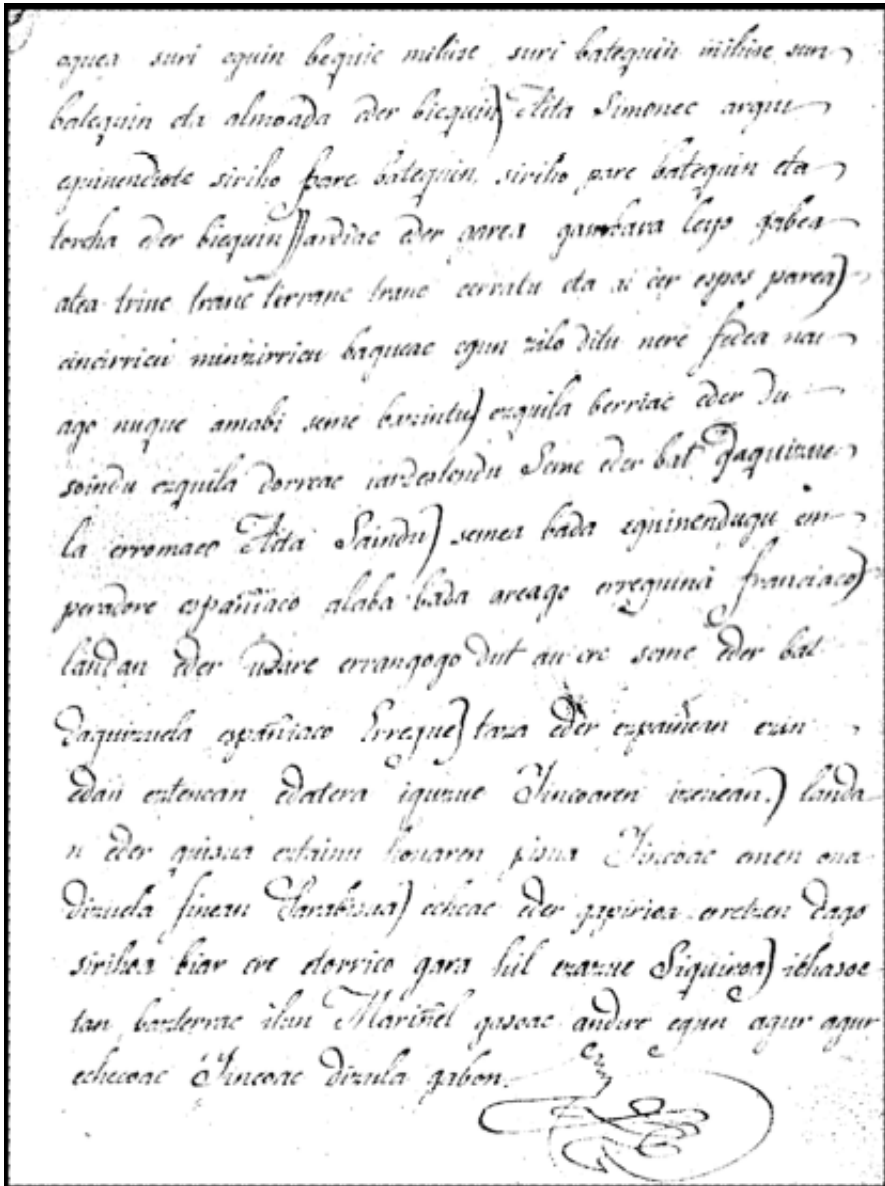 oguea suri eguin beguie mihise suri bateguin mihise suri
bateguin eta almoada eder bieguin) Aita Simonec argui
eguinendiote siriho pare bateguin, siriho pare bateguin eta
torcha eder bieguin) ardiac eder garea gambara leyo gabea
atea trinc tranc tirranc tranc cerratu eta ai cer espos parea)
cincirricu minzirricu baqueac egun zilo ditu nere fedea nau
ago nuque amabi seme bazintu) ezquila berriac eder du
soindu ezquila dorreac iardestendu Seme eder bat daquizue
la erromaco Aita Saindu) semea bada eguinendugu em
peradore españiaco alaba bada areago erreguina franciaco)
landan eder udare errangogo dut au ere seme eder bat
daquizuela españiaco Erregue) taza eder ezpañean ezin
edan eztenean edatera iguzue Jincoaren izenean.) landa
n eder guisua eztainu honaren pisua Jincoac emen ona
dizuela finean Parabisua) echeac eder gapirioa erretzen dago
sirihoa biar ere etorrico gara hil ezazue Siquiroa) ichasoe
tan bazterrac ilun Mariñel gasoac andre egun agur agur
echecoac Jincoac dizula gabon.